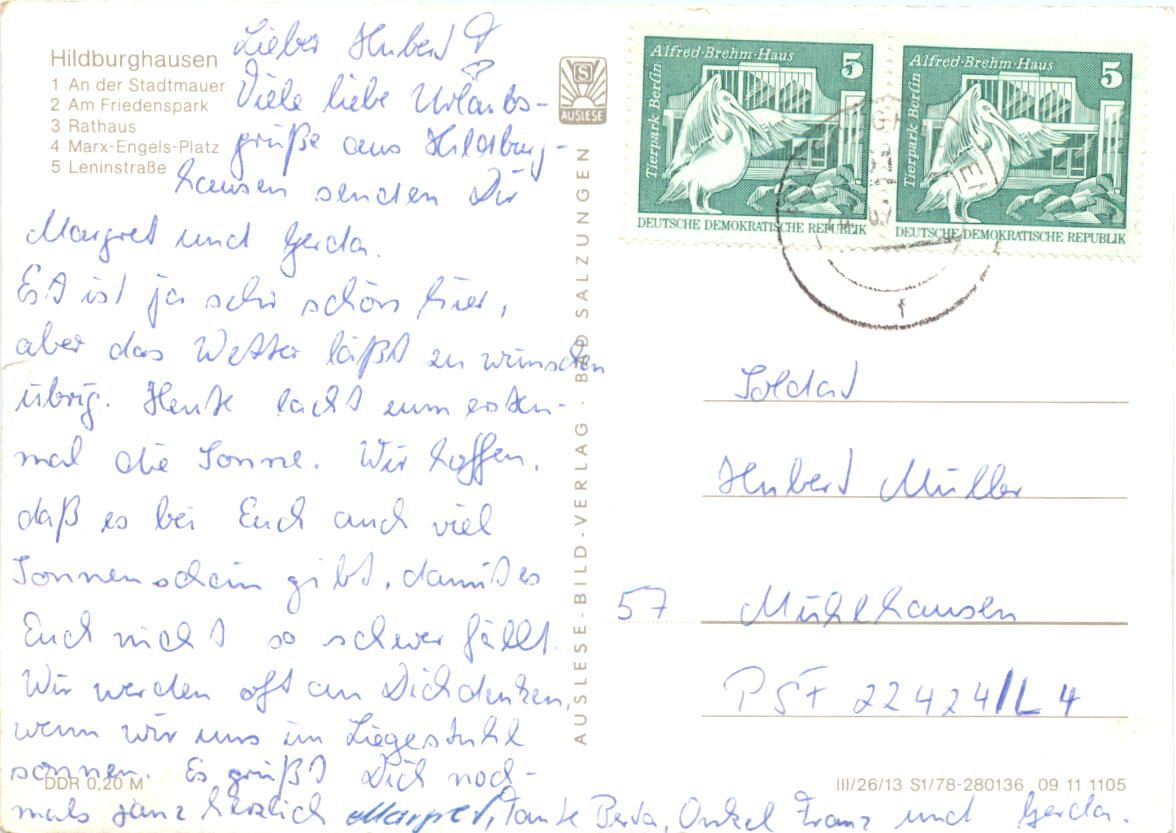 Hildburghausen
1 An der Stadtmauer
2 Am Friedenspark
3 Rathaus
4 Marx-Engels-Platz
5 Leninstraße
Lieber Hubert!
Viele liebe Urlaubs-
grüße aus Hildburg-
hausen senden Dir
Margret und Gerda.
Est ist ja sehr schön hier,
aber das Wetter läßt zu wünschen
übrig. Heute lacht zum ersten-
mal die Sonne. Wir hoffen,
daß es bei Euch auch viel
Sonnenschein gibt, damit es
Euch nicht so schwer fällt.
Wir werden oft an Dich denken,
wenn wir uns im Liegestuhl
sonnen. Es grüßt Dich noch-
mals ganz herzlich Margret, Tante Berta, Onkel Franz und Gerda.
DDR 0,20 M
S
AUSLESE
AUSLESE-BILD-VERLAG · BAD SALZUNGEN
Alfred-Brehm-Haus
5
Tierpark Berlin
DEUTSCHE DEMOKRATISCHE REPUBLIK
Alfred-Brehm-Haus
5
Tierpark Berlin
DEUTSCHE DEMOKRATISCHE REPUBLIK
f
Soldat
Hubert Müller
57 Mühlhausen
PSF 22424/L4
III/26/13 S1/78-280136 09 11 1105